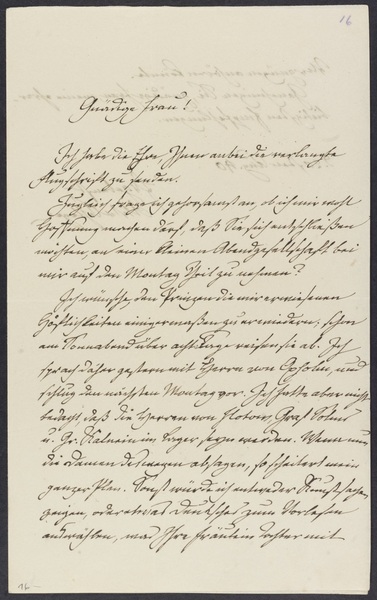 16
Gnädige Frau!
Ich habe die Ehre, Ihnen anbei die verlangte
zu senden.
Zugleich frage ich gehorsamst an, ob ich mir wohl
Hoffnung machen darf, daß Sie sich entschließen
möchten, an einer kleinen Abendgesellschaft bei
mir auf den Montag Theil zu nehmen?
Ich wünsche, den Prinzen die mir erwiesenen
Höflichkeiten einigermaßen zu erwiedern; schon
am Sonnabend über acht Tage reisen sie ab. Ich
sprach daher gestern mit Herrn von und
schlug den nächsten Montag vor. Ich hatte aber nicht
bedacht, daß die Herren von Flotow, Graf
u. Gr. Kalnein im Lager seyn werden. Wenn nun
die Damen deswegen absagen, so scheitert mein
ganzer Plan. Sonst würde ich entweder Kunstsachen
zeigen, oder etwas Deutsches zum Vorlesen
auswählen, was Ihre Fräulein Tochter mit
16